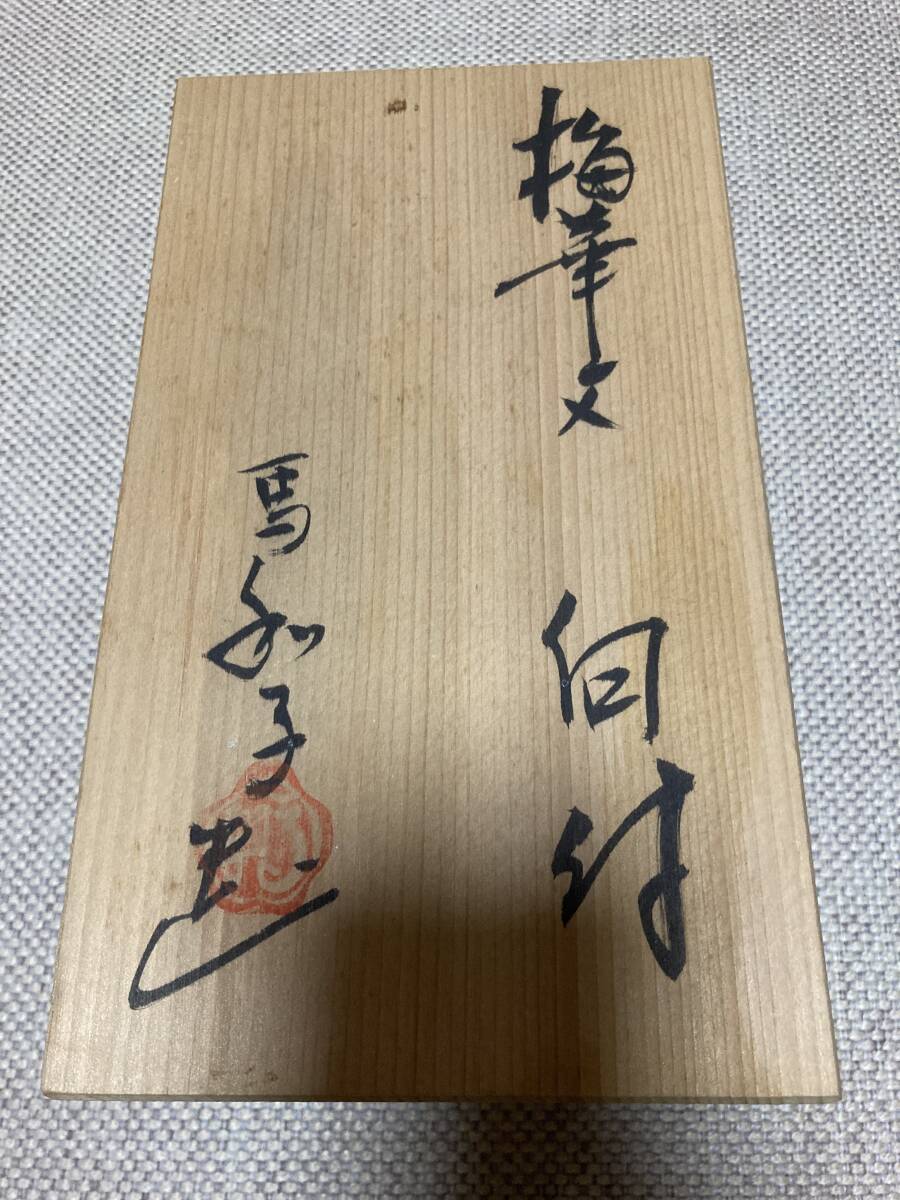 梅華文 向付
馬和子造